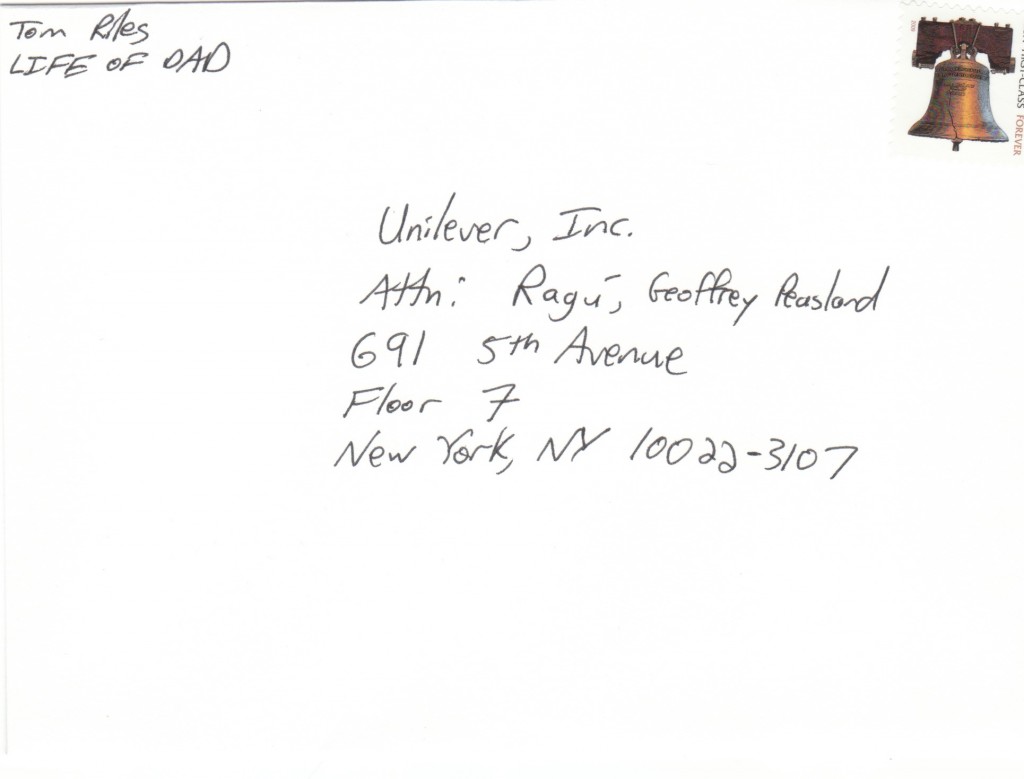 Tom Riles
LIFE OF DAD
FIRST-CLASS FOREVER
Unilever, Inc.
Attn: Ragú, Geoffrey Peasland
691 5th Avenue
Floor 7
New York, NY 10022-3107